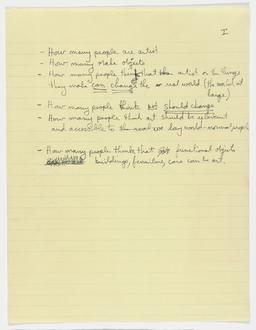 I
- How many people are artist
- How many make objects
- How many people think that the artist or the things
they make can change the real world (the world at
large)
- How many people think art should change
- How many people think art should be relevant
and accessible to the real lay world - normal people
- How many people think that functional objects
buildings, furniture, cars can be art.